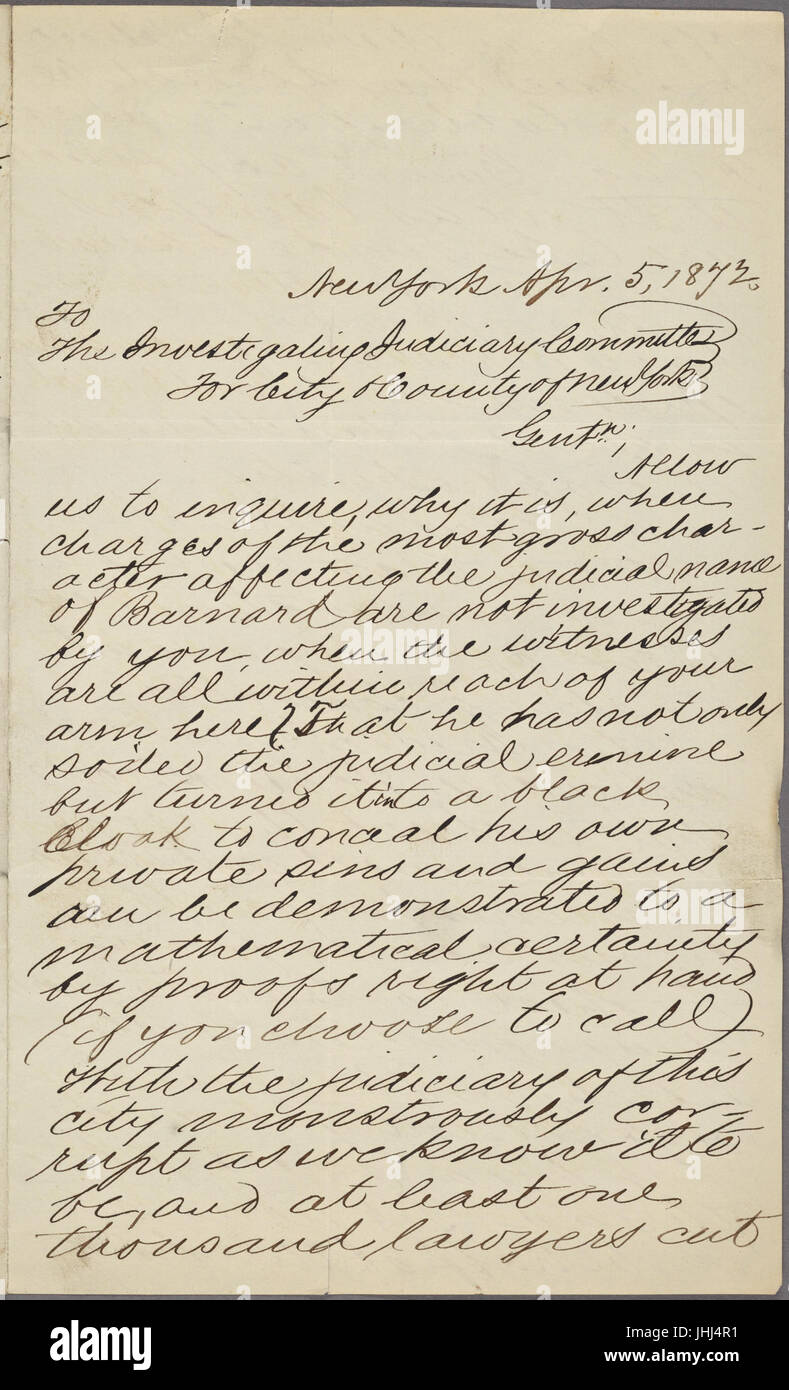 New York Apr. 5, 1872.
To
The Investigating Judiciary Committee
For City & County of New York
Gentn;
Allow
us to inquire, why it is, when
charges of the most gross char-
acter affecting the judicial name
of Barnard are not investigated
by you, when the witnesses
are all within reach of your
arm here? That he has not only
soiled the judicial ermine
but turned it into a black
Cloak to conceal his own
private sins and gains
can be demonstrated to a
mathematical certainty
by proofs right at hand
(if you choose to call)
With the judiciary of this
city monstrously cor-
rupt as we know it to
be, and at least one
thousand lawyers cut
alamy stock photo
JHJ4R1
www.alamy.com